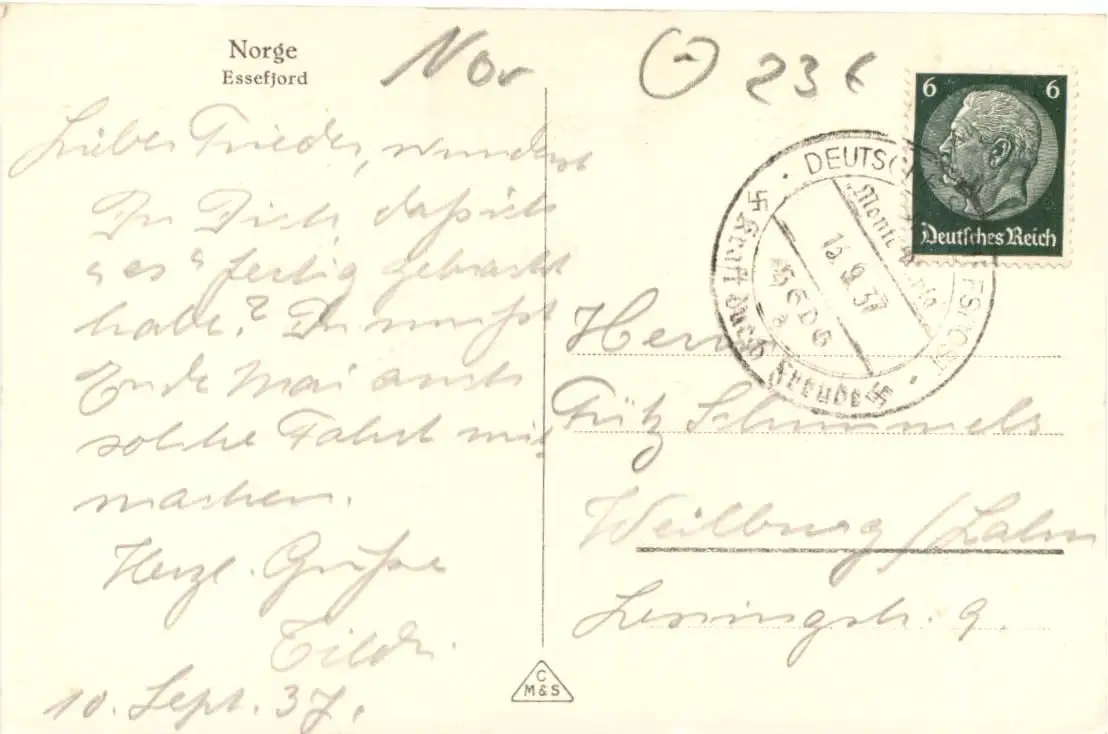 Norge
Essefjord
Nor
236
Lieber Frieder, wunderst
Du Dich, daß ich
"es" fertig gebracht
habe? Du mußt
Ende Mai auch
solche Fahrt mit
machen.
Herzl. Grüße
Tilde.
10. Sept. 37.
C
M & S
6 6
Deutsches Reich
DEUTSCHE
Monte
15.9.37
Kraft durch Freude
Herrn
Fritz Schimmels
Weilburg/Lahn
Lessingstr. 9.